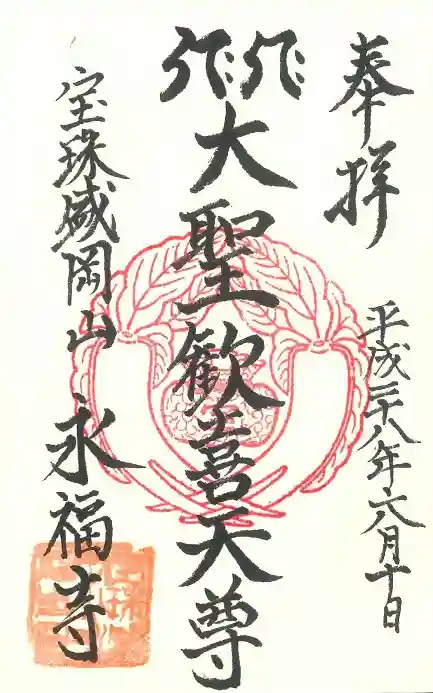 奉拝
平成二十八年六月十日
大聖歓喜天尊
宝珠盛岡山 永福寺